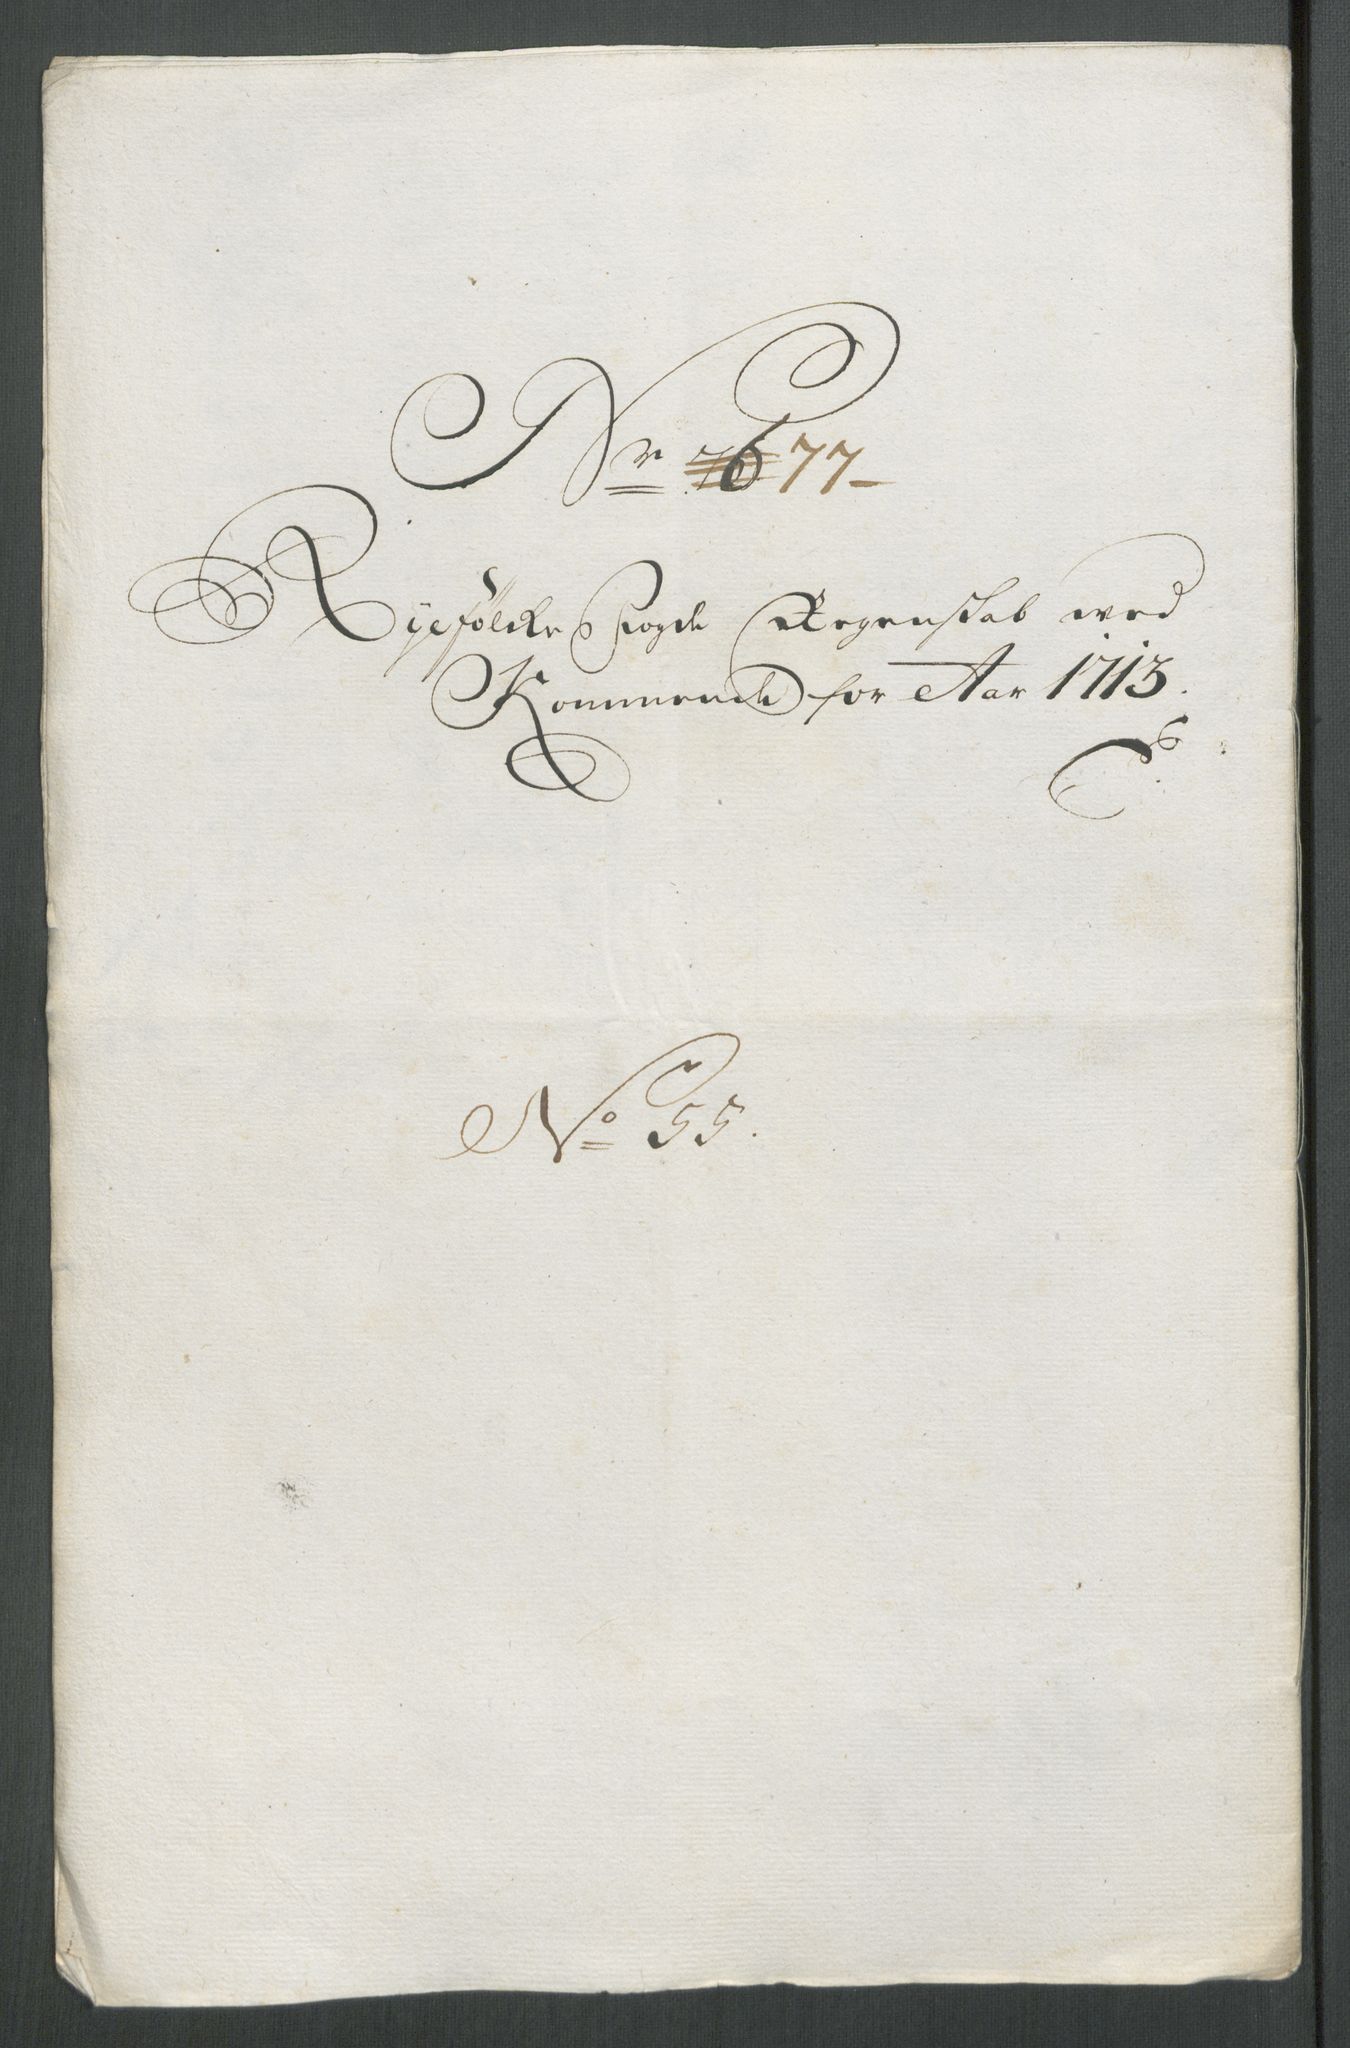 Nr 76 77
Ryefölcke Fogde Regenskab ved
Kommende for Aar 1713.
No 55.